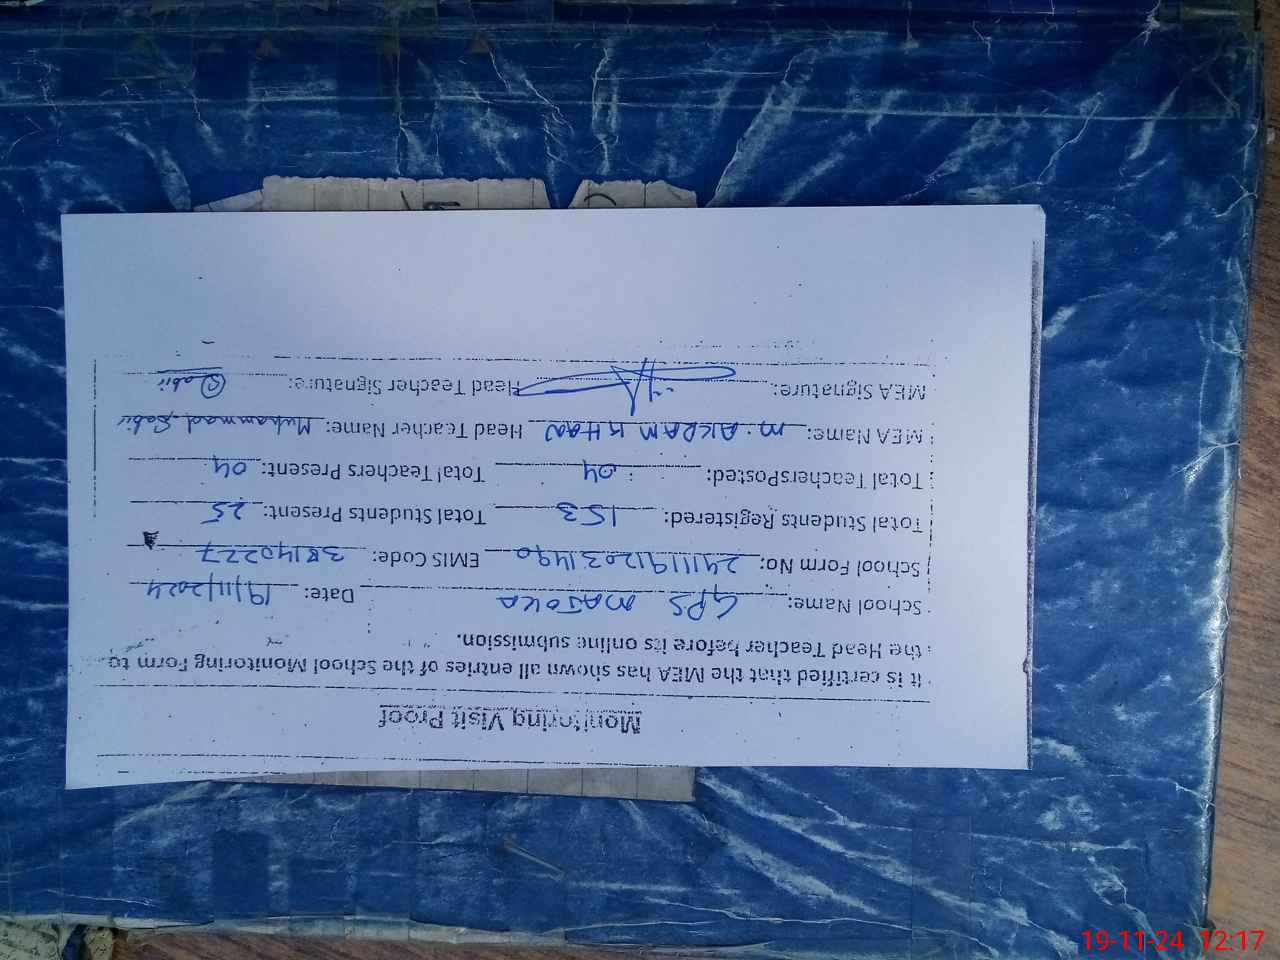 Monitoring Visit Proof
It is certified that the MEA has shown all entries of the School Monitoring Form to
the Head Teacher before its online submission.
School Name: GPS MAJOKA Date: 19/11/2024
School Form No: 24111912031490 EMIS Code: 38140277
Total Students Registered: 153 Total Students Present: 25
Total TeachersPosted: 04 Total Teachers Present: 04
MEA Name: M. AKRAM KHAN Head Teacher Name: Muhammad Sabir
MEA Signature: Head Teacher Signature: Sabir
19-11-24 12:17